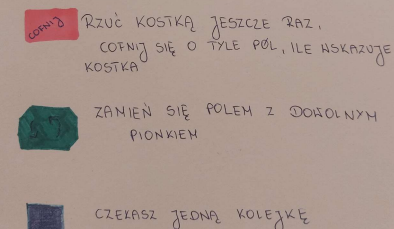 COFNIJ RZUĆ KOSTKĄ JESZCZE RAZ.
COFNIJ SIĘ O TYLE PÓL, ILE WSKAZUJE
KOSTKA
ZAMIEŃ SIĘ POLEM Z DOWOLNYM
PIONKIEM
CZEKASZ JEDNĄ KOLEJKĘ